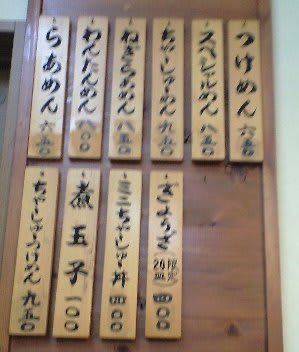 つけめん 六五〇
スペシャルめん 八五〇
ちゃーしゅーめん 九五〇
ねぎらあめん 八五〇
わんたんめん 八〇〇
らあめん 六五〇
ぎょうざ 限定20皿 四〇〇
ミニちゃーしゅー丼 四〇〇
煮玉子 一〇〇
ちゃーしゅーつけめん 九五〇